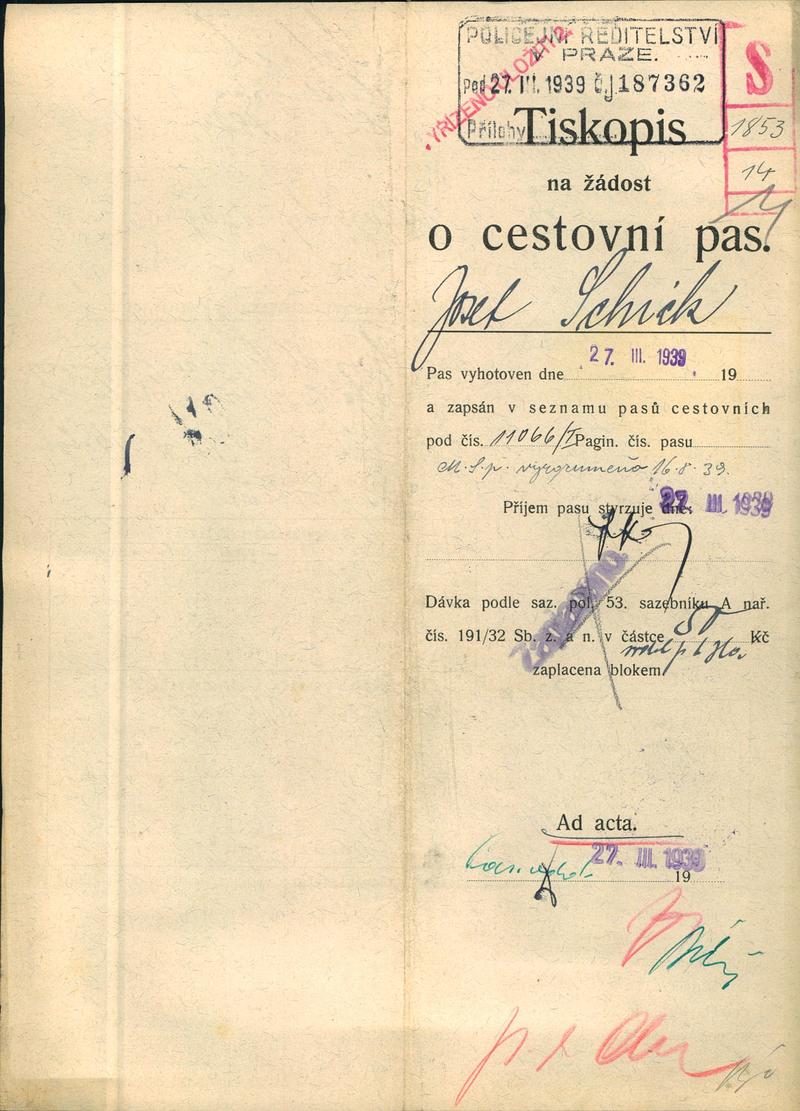 POLICEJNÍ ŘEDITELSTVÍ
V PRAZE.
Pod 27. III. 1939 č.j. 187362
Přílohy
VYŘÍZENO ULOŽITI
S
1853
14
Tiskopis
na žádost
o cestovní pas.
Josef Schick
Pas vyhotoven dne 27. III. 1939 19
a zapsán v seznamu pasů cestovních
pod čís. 11066/I Pagin. čís. pasu
M.S.p. 16.8.39.
Příjem pasu stvrzuje dne: 27. III. 1939
Dávka podle saz. pol. 53. sazebníku A nař.
čís. 191/32 Sb. z. a n. v částce 50 Kč
zaplacena blokem
Ad acta.
27. III. 1939
19